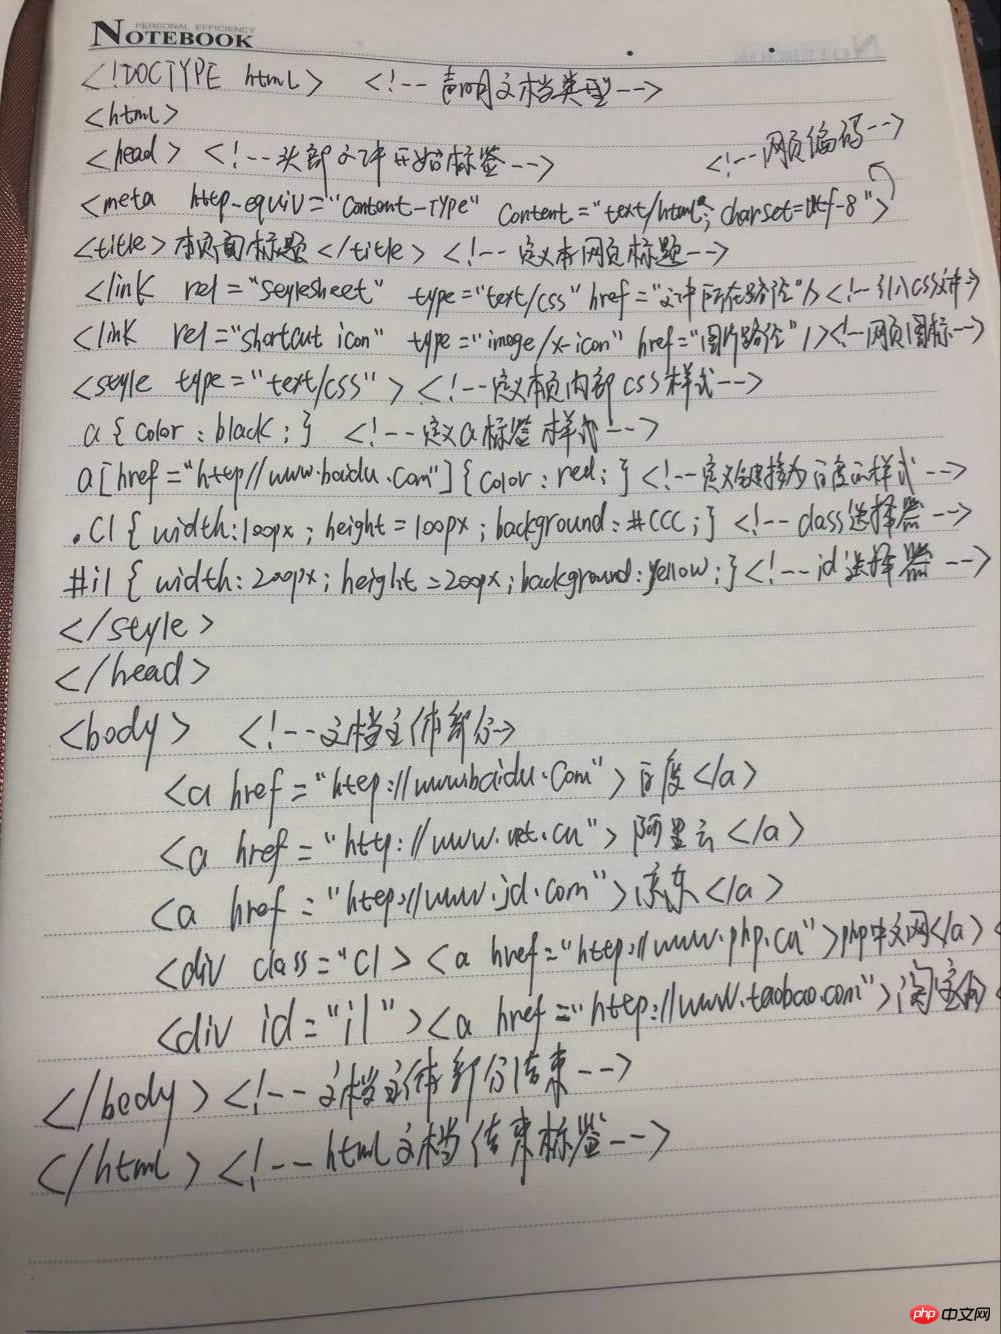 PERSONAL EFFICIENCY
NOTEBOOK
<!DOCTYPE html> <!-- 声明文档类型-->
<html>
<head> <!--头部文件开始标签--> <!--网页编码-->
<meta http-equiv="Content-Type" Content="text/html; charset=utf-8">
<title>本页面标题</title> <!--定义本网页标题-->
<link rel="stylesheet" type="text/css" href="文件所在路径"/><!--引入css文件->
<link rel="shortcut icon" type="image/x-icon" href="图片路径" /><!--网页图标-->
<style type="text/css"> <!--定义本页内部css样式-->
a{color:black;} <!--定义a标签样式-->
a[href="http//www.baidu.com"]{color:red;} <!--定义链接为百度的样式-->
.c1{width:100px;height=100px;background:#CCC;} <!--class选择器-->
#i1{width:200px;height=200px;background:yellow;}<!--id选择器-->
</style>
</head>
<body> <!--文档主体部分->
<a href="http://www.baidu.com">百度</a>
<a href="http://www.net.cn">阿里云</a>
<a href="http://www.jd.com">京东</a>
<div class="c1><a href="http://www.php.cn">php中文网</a><
<div id="i1"><a href="http://www.taobao.com">淘宝网<
</body><!--文档主体部分结束-->
</html><!--html文档结束标签-->
php中文网